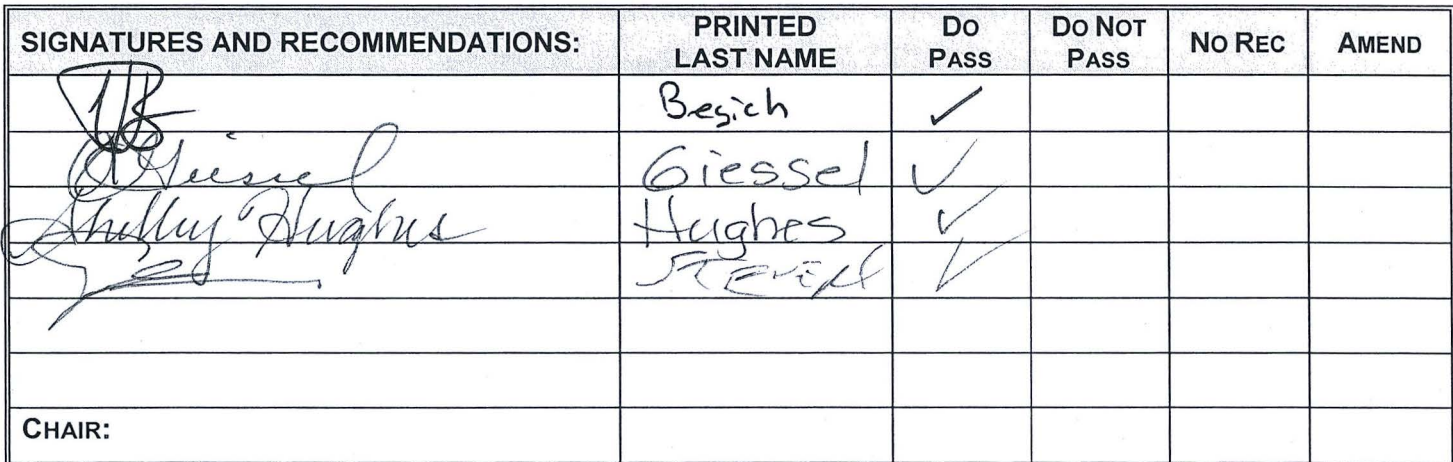 SIGNATURES AND RECOMMENDATIONS: PRINTED LAST NAME DO PASS DO NOT PASS NO REC AMEND
Begich ✓
Giessel Giessel ✓
Shelley Hughes Hughes ✓
✓
CHAIR: